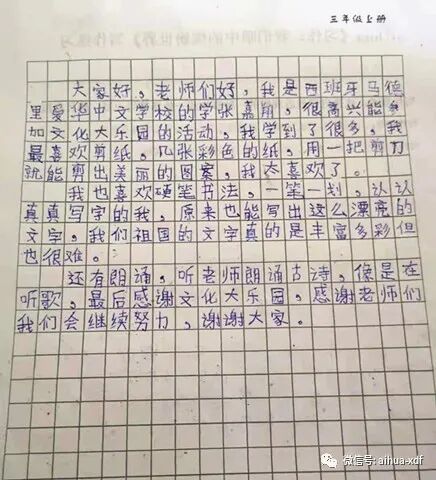 三年级上册
大家好,老师们好,我是西班牙马德
里爱华中文学校的学张嘉甪,很高兴能参
加文化大乐园的活动,我学到了很多,我
最喜欢剪纸,几张彩色的纸,用一把剪刀
就能剪出美丽的图案,我太喜欢了。
我也喜欢硬笔书法,一笔一划,认认
真真写字的我,原来也能写出这么漂亮的
文字,我们祖国的文字真的是丰富多彩但
也很难。
还有朗诵,听老师朗诵古诗,像是在
听歌,最后感谢文化大乐园,感谢老师们
我们会继续努力,谢谢大家。
微信号: aihua-xdf